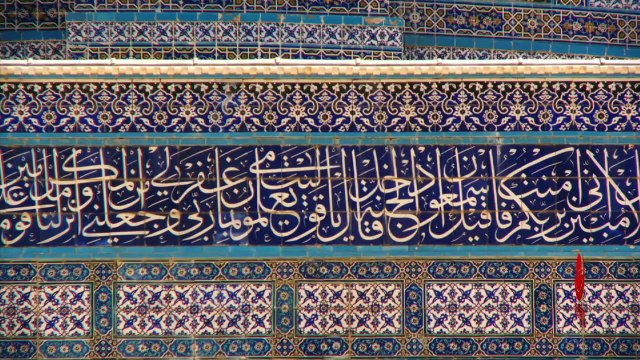 مبين اني امنت بربكم فاسمعون قيل ادخل الجنة قال يا ليت قومي يعلمون بما غفر لي ربي وجعلني من المكرمين وما انزلنا على قومه